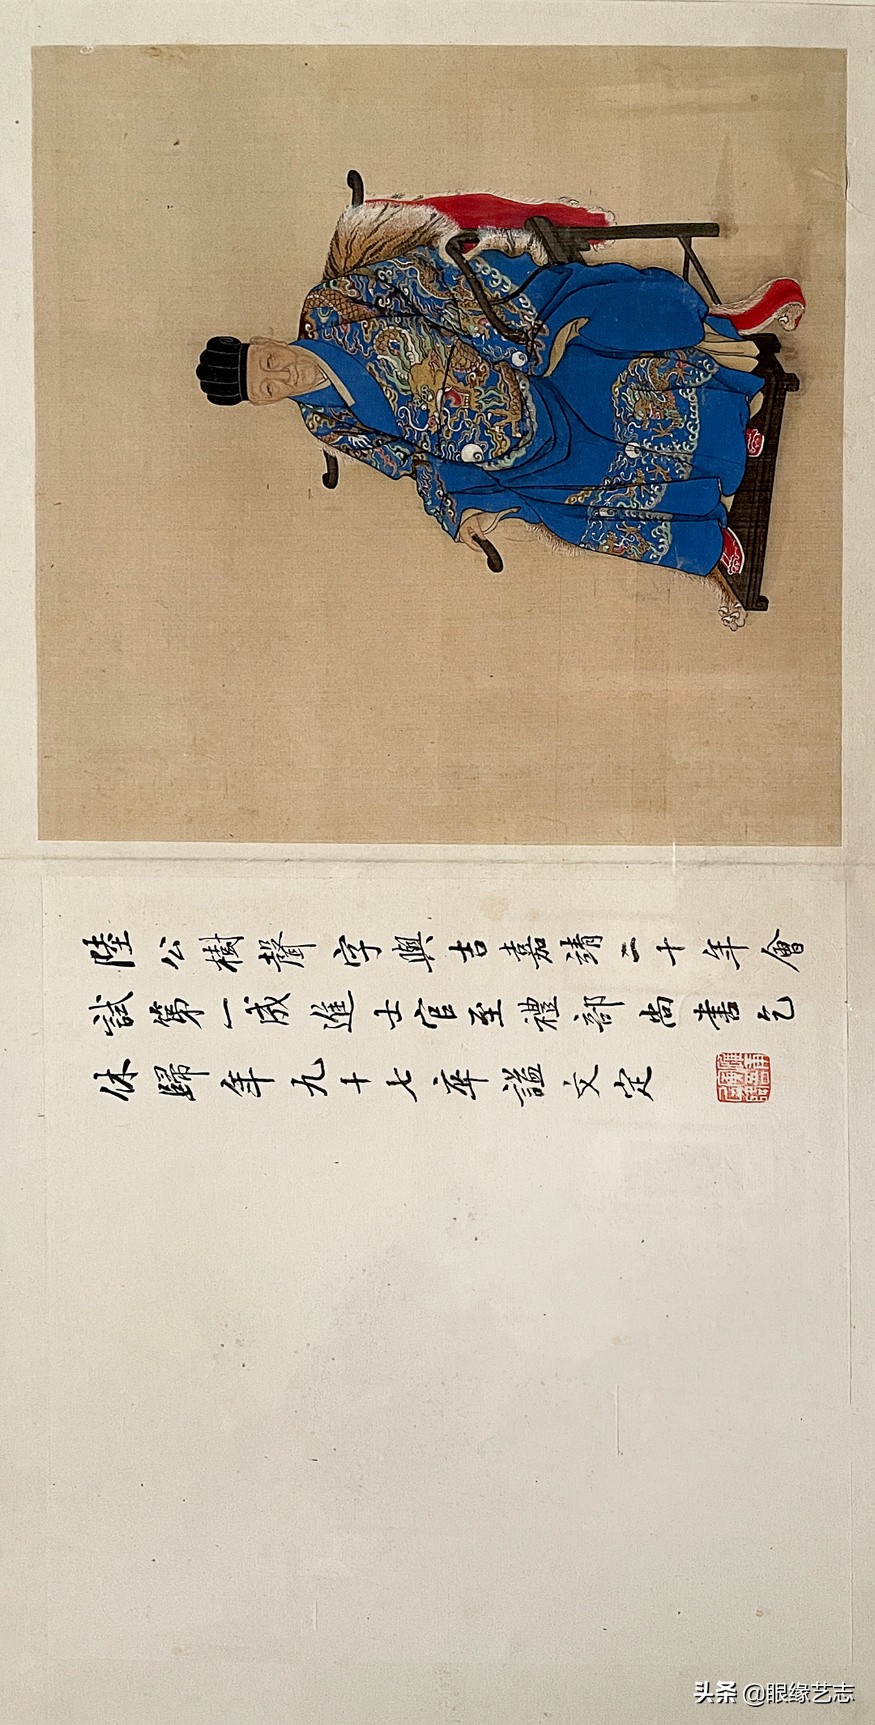 陸公樹聲字與吉嘉靖二十年會
試第一成進士官至禮部尚書乞
休歸年九十七卒謚文定
头条 @眼缘艺志